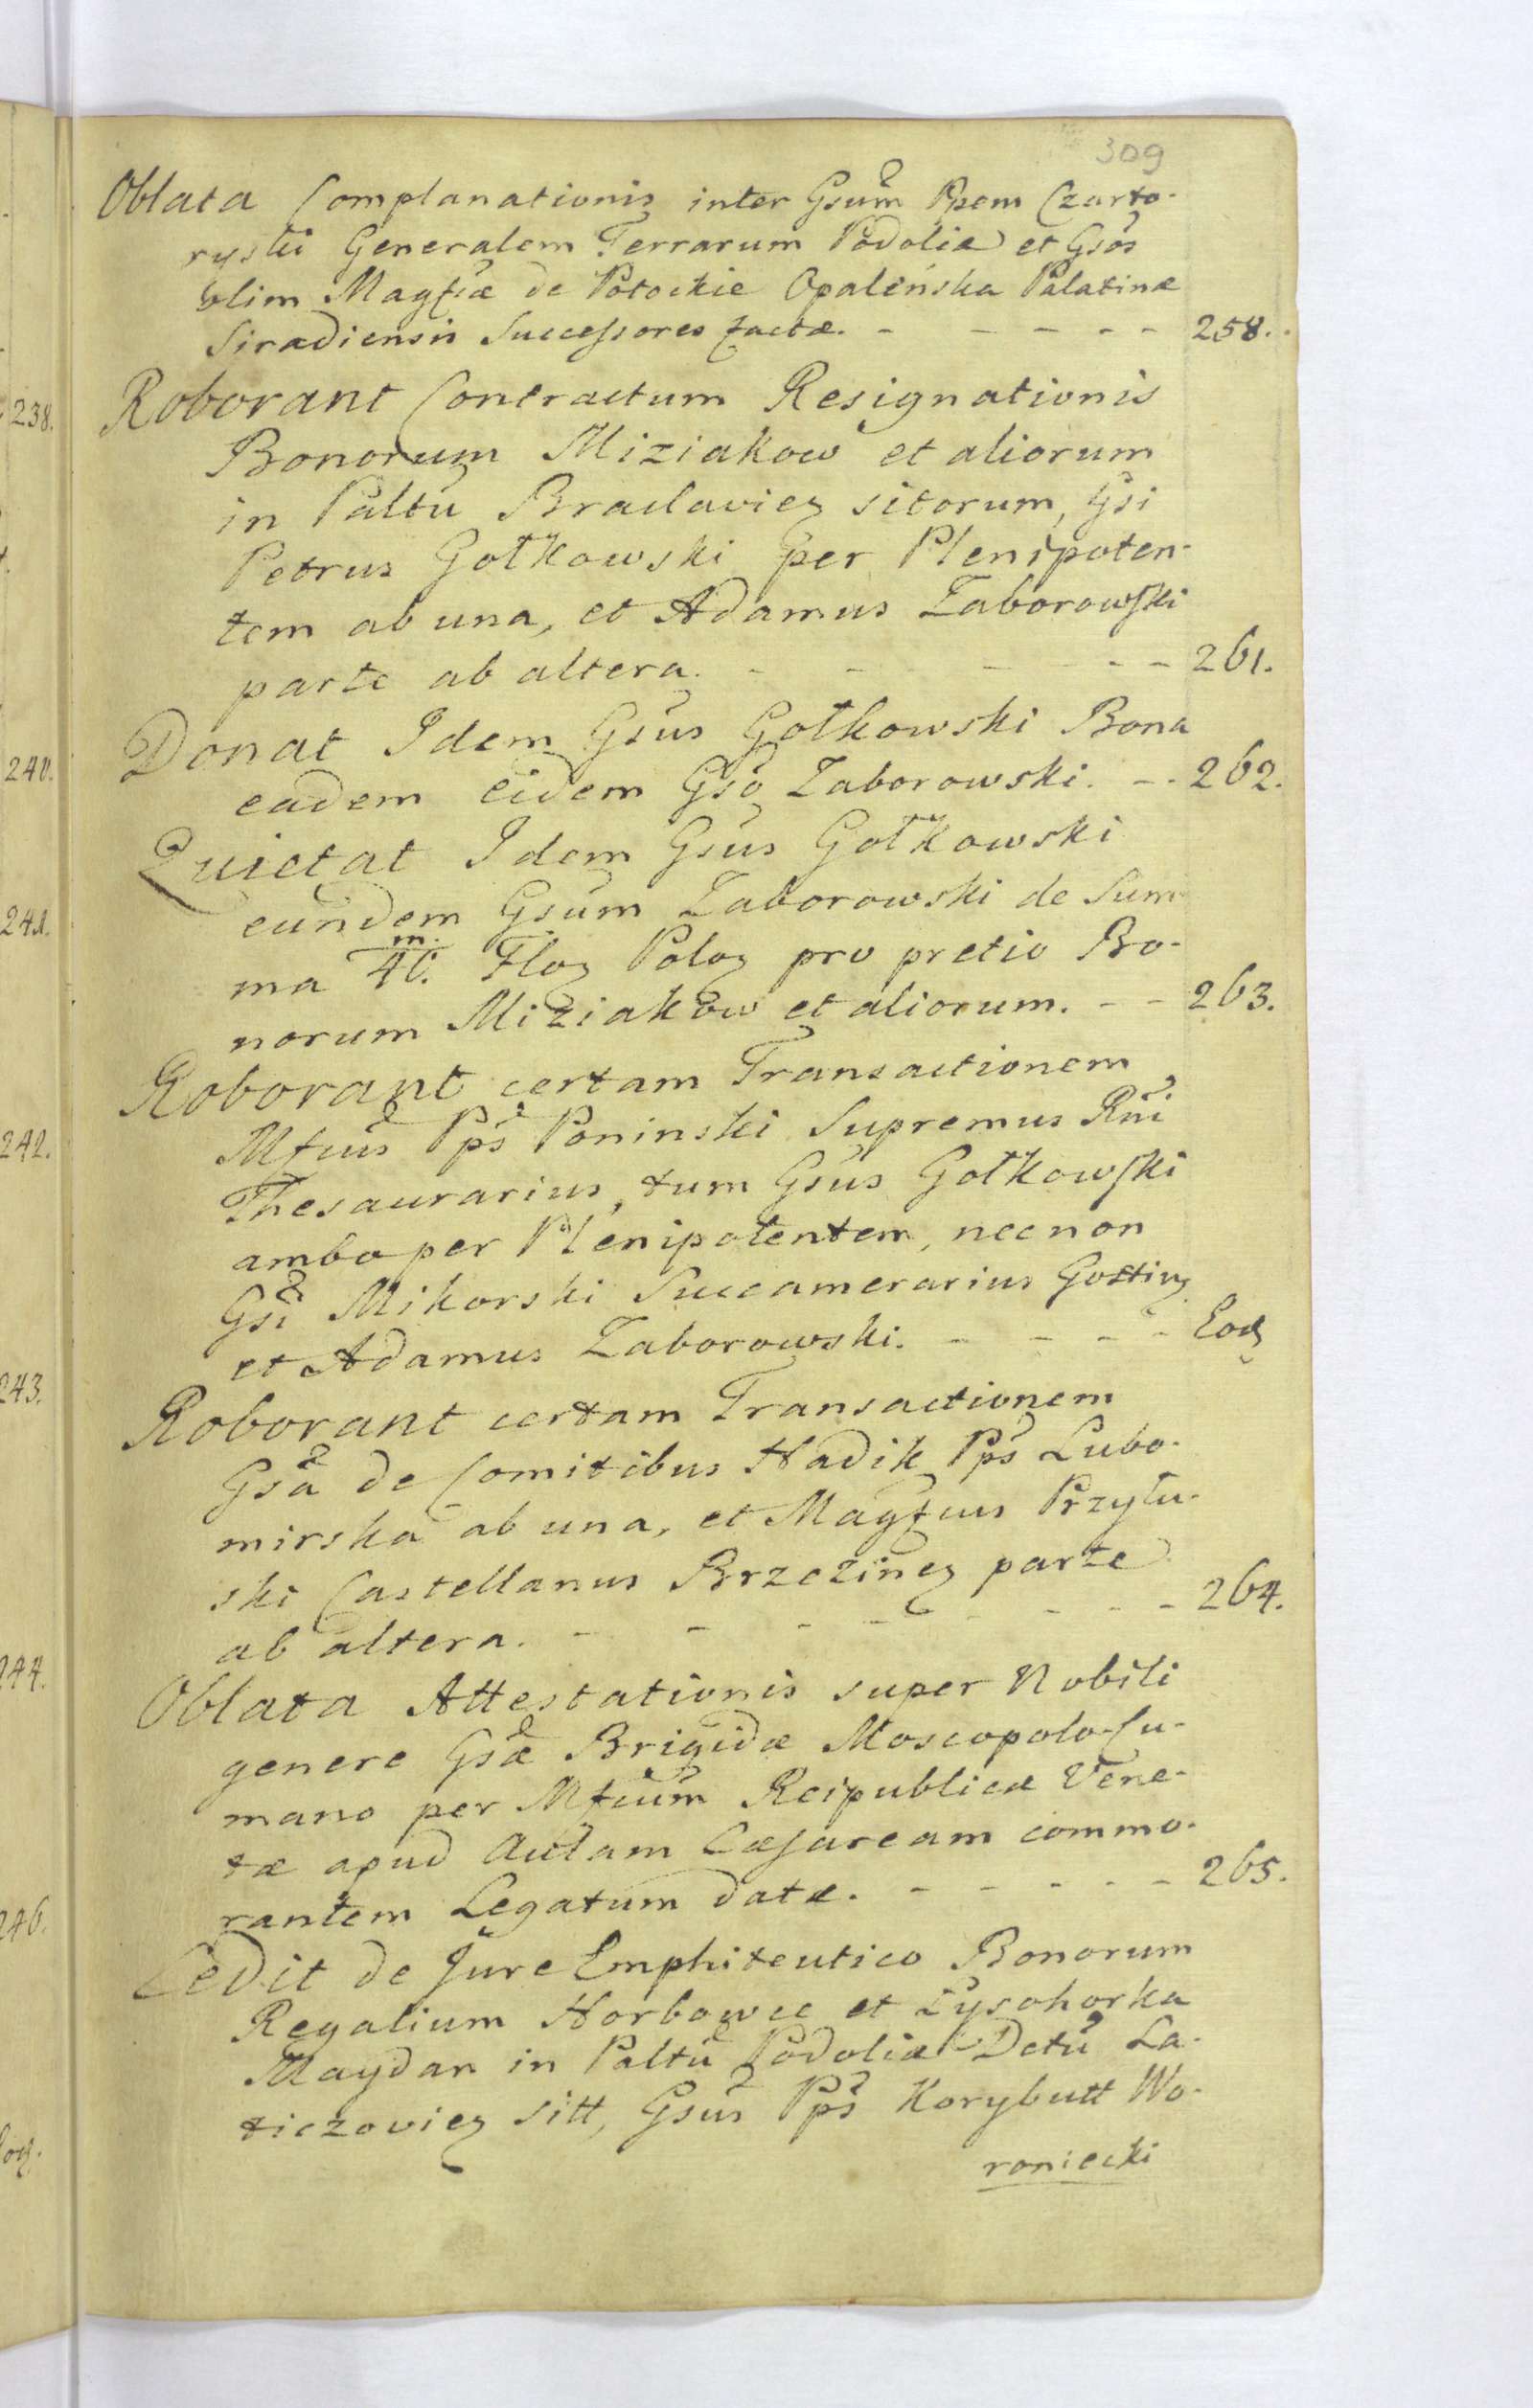 309
Oblata Complanationis inter Gsum Ppem Czarto-
ryski Generalem Terrarum Podoliæ et Gsos
olim Magfcæ de Potockie Opalińska Palatinæ
Siradiensis Successores factæ. - - - - - 258.
Roborant Contractum Resignationis
Bonorum Miziakow et aliorum
in Paltu Braclavien sitorum, Gsi
Petrus Gołkowski per Plenipoten-
tem ab una, et Adamus Zaborowski
parte ab altera. - - - - - 261.
Donat Idem Gsus Gołkowski Bona
eadem eidem Gso Zaborowski. - - 262.
Quietat Idem Gsus Gołkowski
eundem Gsum Zaborowski de Sum-
ma 40. m. Flor Polor pro pretio Bo-
norum Miziaków et aliorum. - - 263.
Roborant certam Transactionem
Mfcus Pps Poninski Supremus Rni
Thesaurarius, tum Gsus Gołkowski
ambo per Plenipotentem, nec non
Gsi Mikorski Succamerarius Gostin
et Adamus Zaborowski. - - - - Eod
Roborant certam Transactionem
Gsa de Comitibus Hadik Pps Lubo-
mirska ab una, et Magfcus Przyłu-
ski Castellanus Brzezinen parte
ab altera. - - - - - - - - 264.
Oblata Attestationis super Nobili
genere Gsæ Brigidæ Moscopolo-Cu-
mano per Mfcum Reipublicæ Vene-
tæ apud Aulam Cæsaream commo-
rantem Legatum datæ. - - - - - 265.
Cedit de Jure Emphiteutico Bonorum
Regalium Horbowce et Łysohorka
Maydan in Paltu Podoliæ Dctu La-
ticzovien sitt, Gsus Pps Korybutt Wo-
roniecki
238.
240.
241.
242.
243.
244.
246.